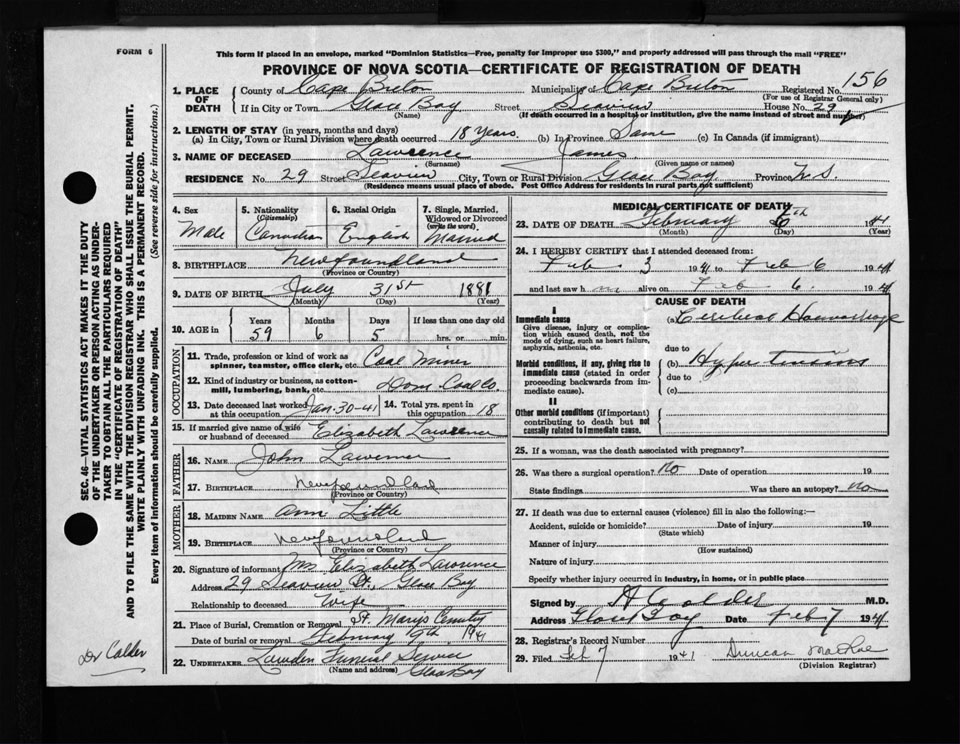 FORM 6
This form if placed in an envelope, marked "Dominion Statistics—Free, penalty for improper use $300," and properly addressed will pass through the mail "FREE"
PROVINCE OF NOVA SCOTIA—CERTIFICATE OF REGISTRATION OF DEATH
1. PLACE OF DEATH County of Cape Breton Municipality of Cape Breton Registered No. 156
(For use of Registrar General only)
If in City or Town Glace Bay Street Seaview House No. 29
(Name) (If death occurred in a hospital or institution, give the name instead of street and number)
2. LENGTH OF STAY (in years, months and days)
(a) In City, Town or Rural Division where death occurred 18 Years. (b) In Province Same (c) In Canada (if immigrant)
3. NAME OF DECEASED Lawrence James
(Surname) (Given name or names)
RESIDENCE No. 29 Street Seaview City, Town or Rural Division Glace Bay Province N.S.
(Residence means usual place of abode. Post Office Address for residents in rural parts not sufficient)
4. Sex Male
5. Nationality (Citizenship) Canadian
6. Racial Origin English
7. Single, Married, Widowed or Divorced (write the word) Married
8. BIRTHPLACE Newfoundland
(Province or Country)
9. DATE OF BIRTH July 31st 1881
(Month) (Day) (Year)
10. AGE in Years Months Days If less than one day old
59 6 5 hrs. or min.
OCCUPATION
11. Trade, profession or kind of work as spinner, teamster, office clerk, etc. Coal Miner
12. Kind of industry or business, as cotton-mill, lumbering, bank, etc. Dom Coal Co
13. Date deceased last worked at this occupation Jan-30-41
14. Total yrs. spent in this occupation 18
15. If married give name of wife or husband of deceased Elizabeth Lawrence
FATHER
16. NAME John Lawrence
17. BIRTHPLACE Newfoundland
(Province or Country)
MOTHER
18. MAIDEN NAME Ann Little
19. BIRTHPLACE Newfoundland
(Province or Country)
20. Signature of informant Mrs Elizabeth Lawrence
Address 29 Seaview St., Glace Bay
Relationship to deceased Wife
21. Place of Burial, Cremation or Removal St. Mary's Cemetry
Date of burial or removal February 9th 1941
22. UNDERTAKER Funeral Service
(Name and address) Glace Bay
MEDICAL CERTIFICATE OF DEATH
23. DATE OF DEATH February 6th 1941
(Month) (Day) (Year)
24. I HEREBY CERTIFY that I attended deceased from:
Feb 3 1941 to Feb 6 1941
and last saw h m alive on Feb 6. 1941
CAUSE OF DEATH
I
Immediate cause (a) Cerebral Haemorrhage
Give disease, injury or complication which caused death, not the mode of dying, such as heart failure, asphyxia, asthenia, etc.
due to
Morbid conditions, if any, giving rise to immediate cause (stated in order proceeding backwards from immediate cause).
(b) Hypertension
due to
(c)
II
Other morbid conditions (if important) contributing to death but not causally related to immediate cause.
25. If a woman, was the death associated with pregnancy?
26. Was there a surgical operation? No Date of operation 19
State findings Was there an autopsy? No
27. If death was due to external causes (violence) fill in also the following:—
Accident, suicide or homicide? Date of injury 19
(State which)
Manner of injury
(How sustained)
Nature of injury
Specify whether injury occurred in industry, in home, or in public place
Signed by A Calder M.D.
Address Glace Bay Date Feb 7 1941
28. Registrar's Record Number
29. Filed Feb 7 1941 Duncan MacRae
(Division Registrar)
SEC. 46—VITAL STATISTICS ACT MAKES IT THE DUTY OF THE UNDERTAKER OR PERSON ACTING AS UNDERTAKER TO OBTAIN ALL THE PARTICULARS REQUIRED IN THE "CERTIFICATE OF REGISTRATION OF DEATH"
AND TO FILE THE SAME WITH THE DIVISION REGISTRAR WHO SHALL ISSUE THE BURIAL PERMIT.
WRITE PLAINLY WITH UNFADING INK. THIS IS A PERMANENT RECORD.
Every item of information should be carefully supplied. (See reverse side for instructions.)
Dr Calder